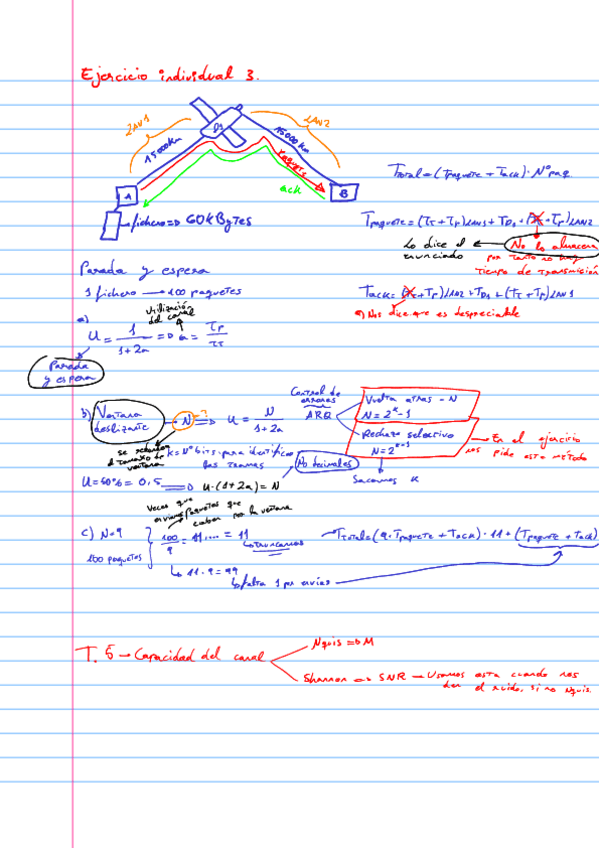 Ejercicio individual 3.
LAN1
D1
LAN2
15000km
15000km
Paquete
ack
A
B
fichero => 60kBytes
Ttotal = (Tpaquete + Tack) · Nº paq
Tpaquete = (Tt + Tp)LAN1 + TD1 + (Tt + Tp)LAN2
Lo dice el enunciado
No lo almacena
por tanto no hay
tiempo de transmisión
Parada y espera
1 fichero → 100 paquetes
Tack = (Tt + Tp)LAN2 + TD1 + (Tt + Tp)LAN1
Nos dice que es despreciable
a)
utilización del canal
U = 1 / (1 + 2a) => a = Tp / Tt
Parada y espera
b) Ventana deslizante
N ?
=> U = N / (1 + 2a)
Control de errores
ARQ
Vuelta atras - N
N = 2^k - 1
Rechazo selectivo
N = 2^(k-1)
En el ejercicio
nos pide este método
tamaño de ventana
k = Nº bits para identificar
las tramas
No decimales
Sacamos k
U = 50% = 0,5 => U · (1 + 2a) = N
Veces que
paquetes que
caben por la ventana
c) N = 9
100 paquetes
100 / 9 = 11.... = 11
truncamos
Ttotal = (9 · Tpaquete + Tack) · 11 + (Tpaquete + Tack)
11 · 9 = 99
falta 1 por enviar
T. 5 → Capacidad del canal
Nquis => M
Shannon => SNR → Usamos esta cuando nos
den el ruido, si no Nquis.